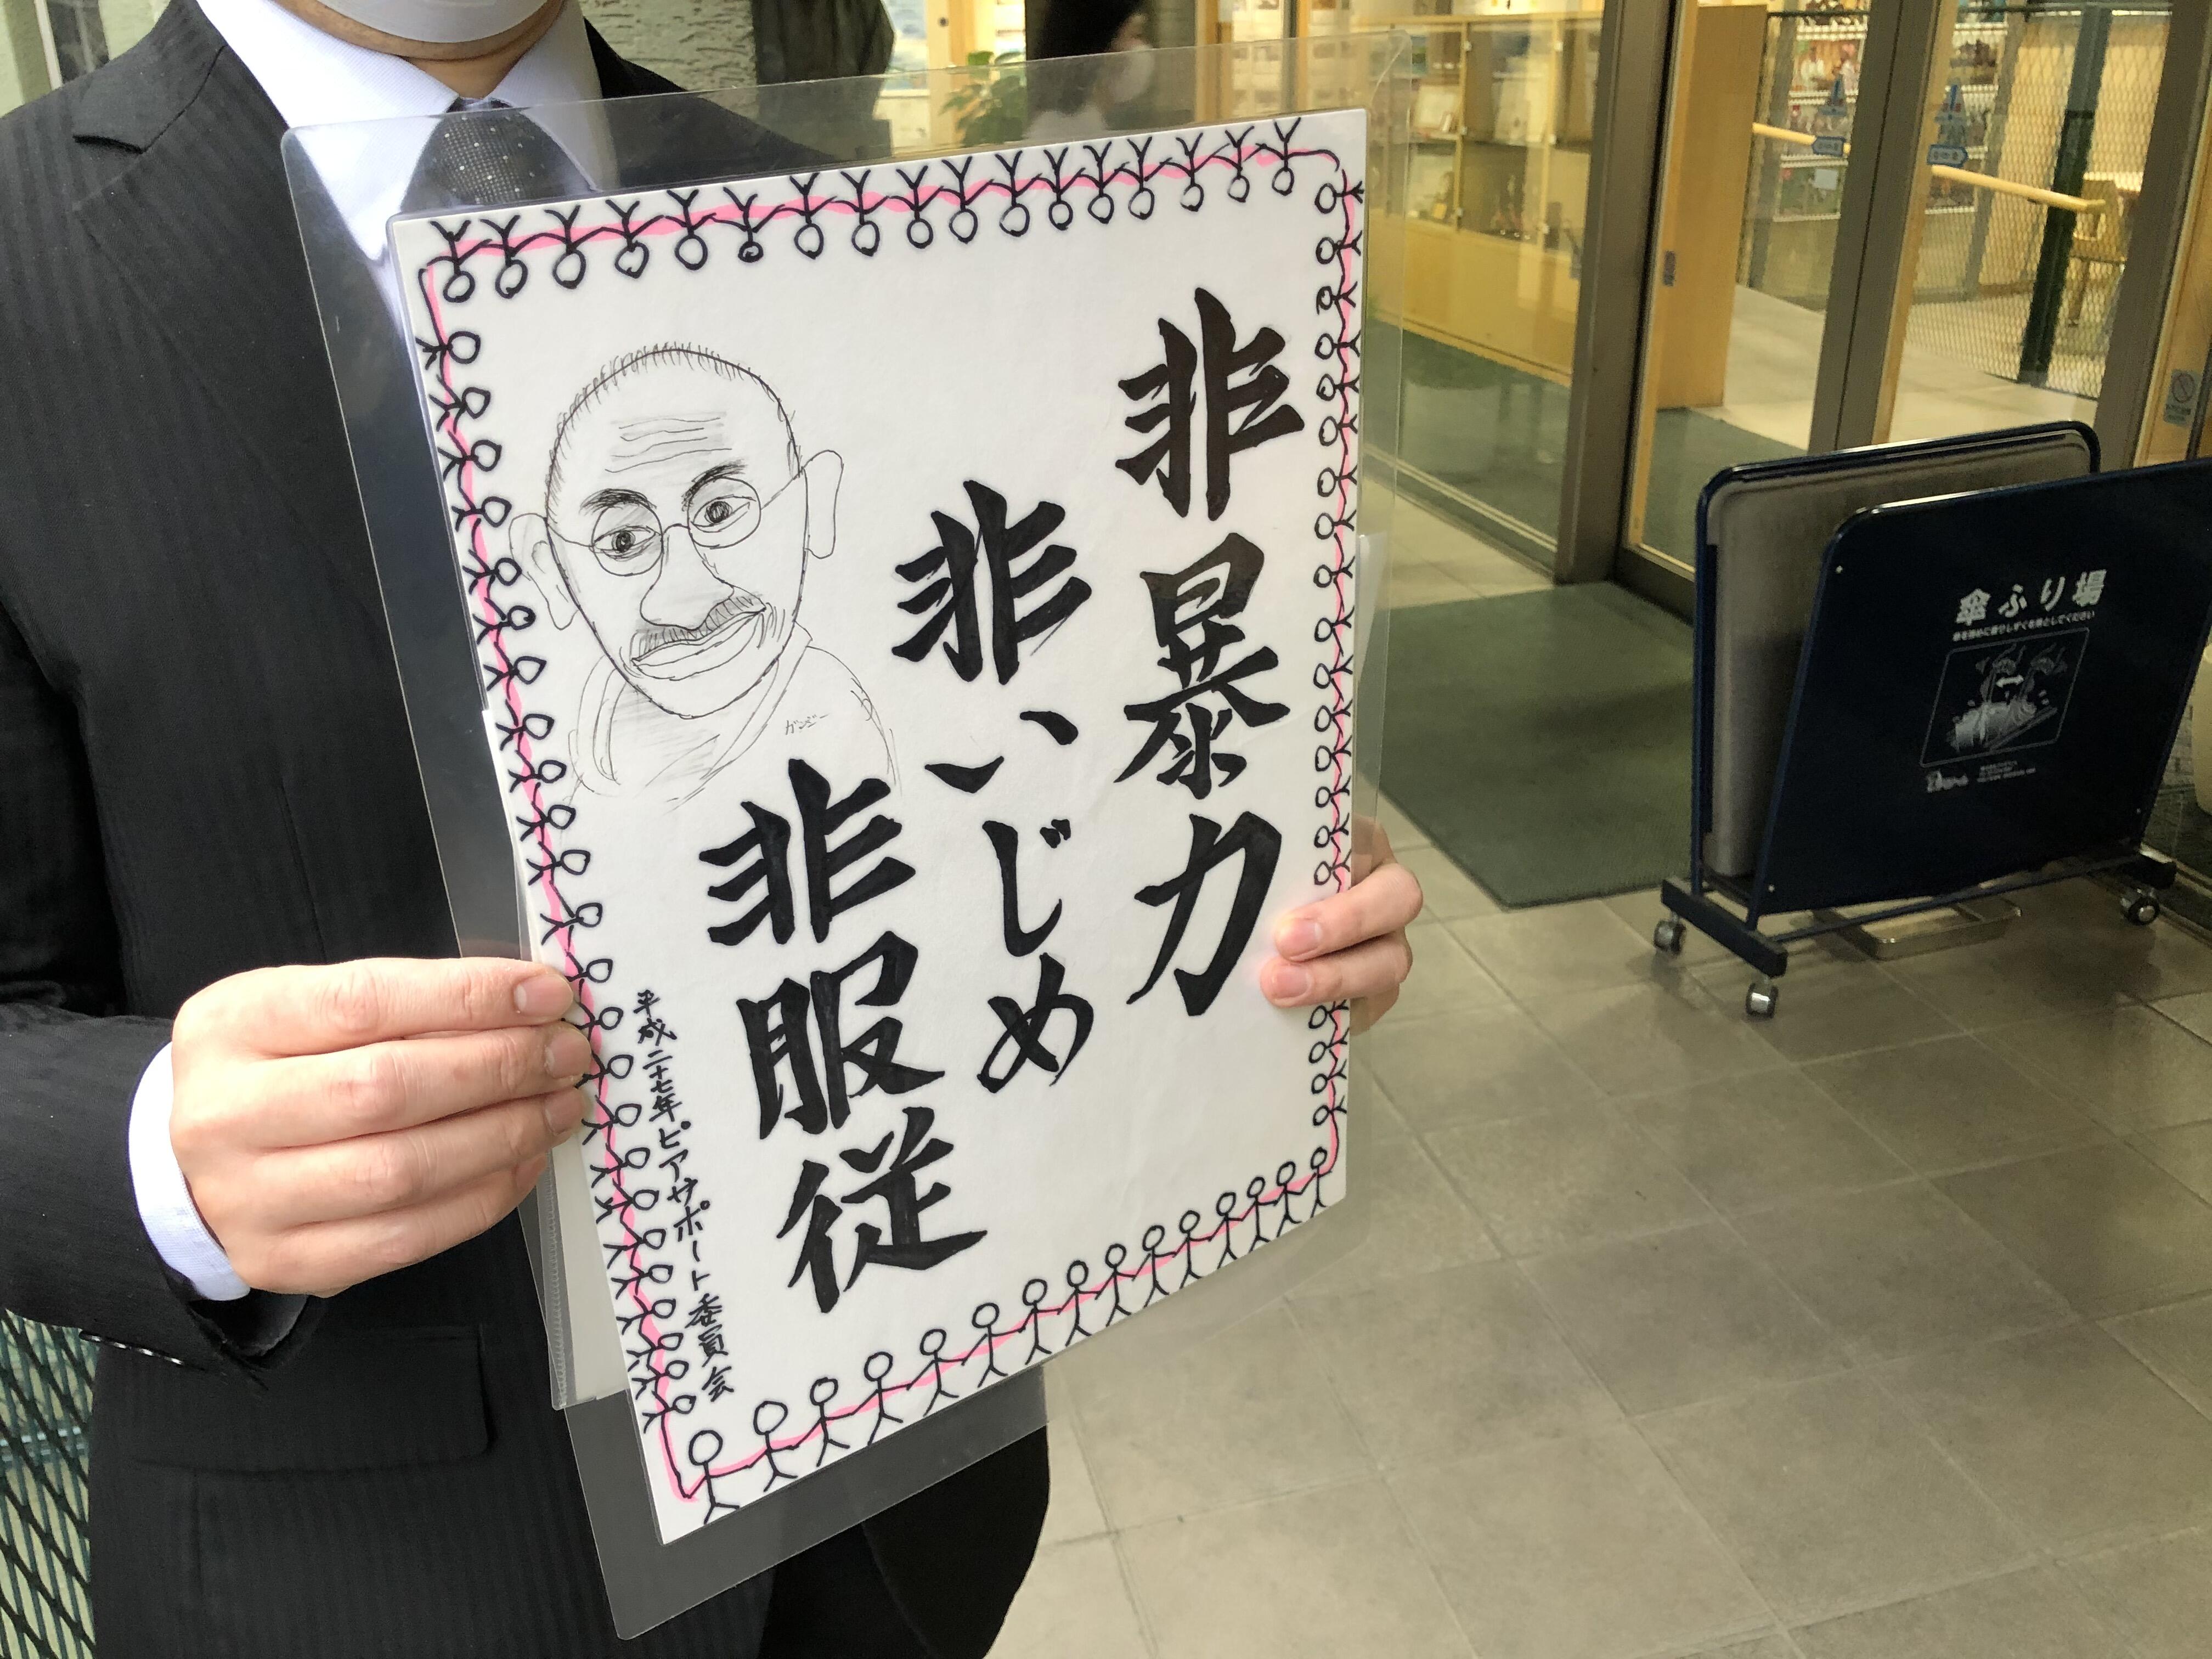 非暴力
非いじめ
非服従
ガンジー
平成二十七年ピアサポート委員会
傘ふり場